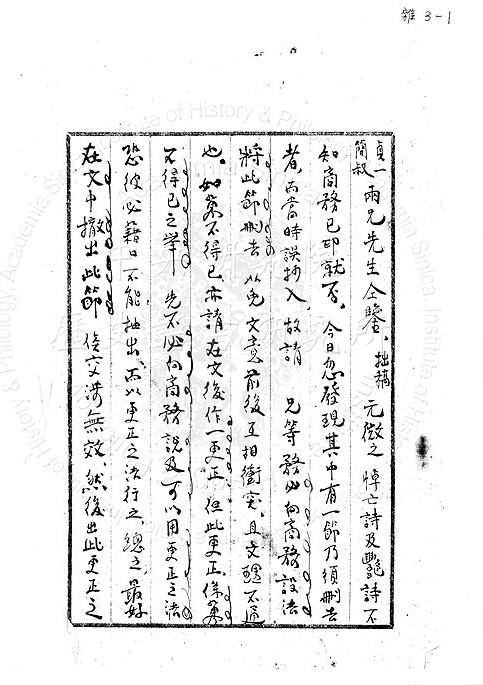 雜 3-1
貞一
簡叔 兩兄先生仝鑒、拙稿 元微之 悼亡詩及艷詩不
知商務已印就否。今日忽發現其中有一節乃須刪去
者、而當時誤抄入、故請 兄等務必向商務設法
將此節刪去 以免文意前後互相衝突、且文理不通
也。如萬不得已亦請在文後作一更正、但此更正係萬
不得已之舉 先不必向商務說及可以用更正之法
恐彼必藉口不能抽出、而以更正之法行之、總之、最好
在文中撤出此節 俟交涉無效、然後出此更正之